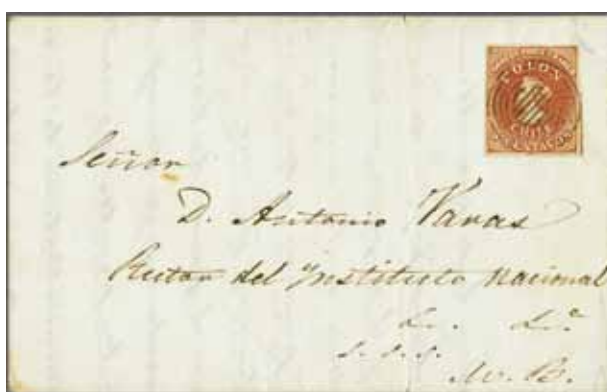 COLON
CHILE
CENTAVOS
Señor
D. Antonio Varas
Rector del Instituto Nacional
S. S. S.
M. B.